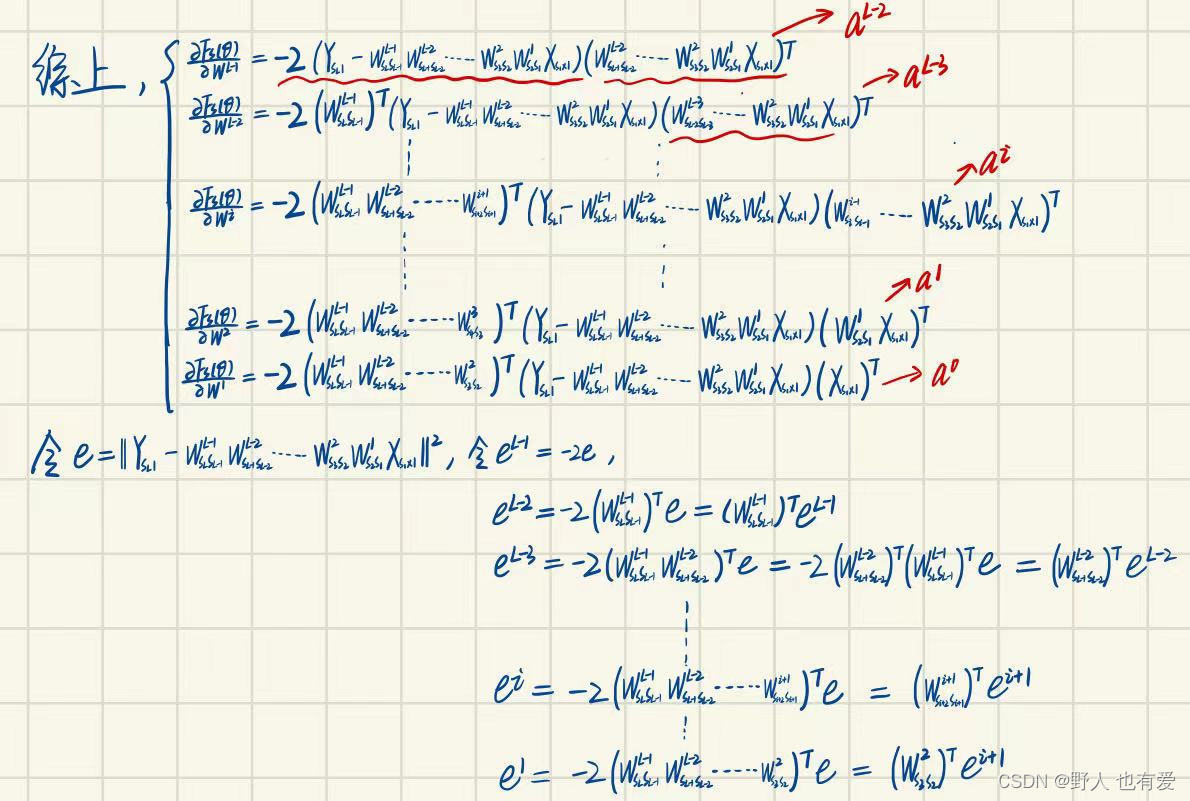 综上,
∂F₃(θ)/∂W^{L-1} = -2 (Y_{S_L1} - W^{L-1}_{S_LS_{L-1}} W^{L-2}_{S_{L-1}S_{L-2}} ...... W²_{S₃S₂} W¹_{S₂S₁} X_{S₁×1}) (W^{L-2}_{S_{L-1}S_{L-2}} ...... W²_{S₃S₂} W¹_{S₂S₁} X_{S₁×1})^T → a^{L-2}
∂F₃(θ)/∂W^{L-2} = -2 (W^{L-1}_{S_LS_{L-1}})^T (Y_{S_L1} - W^{L-1}_{S_LS_{L-1}} W^{L-2}_{S_{L-1}S_{L-2}} ...... W²_{S₃S₂} W¹_{S₂S₁} X_{S₁×1}) (W^{L-3}_{S_{L-2}S_{L-3}} ...... W²_{S₃S₂} W¹_{S₂S₁} X_{S₁×1})^T → a^{L-3}
∂F₃(θ)/∂W^{i} = -2 (W^{L-1}_{S_LS_{L-1}} W^{L-2}_{S_{L-1}S_{L-2}} ...... W^{i+1}_{S_{i+2}S_{i+1}})^T (Y_{S_L1} - W^{L-1}_{S_LS_{L-1}} W^{L-2}_{S_{L-1}S_{L-2}} ...... W²_{S₃S₂} W¹_{S₂S₁} X_{S₁×1}) (W^{i-1}_{S_iS_{i-1}} ...... W²_{S₃S₂} W¹_{S₂S₁} X_{S₁×1})^T → a^i
∂F₃(θ)/∂W² = -2 (W^{L-1}_{S_LS_{L-1}} W^{L-2}_{S_{L-1}S_{L-2}} ...... W³_{S₄S₃})^T (Y_{S_L1} - W^{L-1}_{S_LS_{L-1}} W^{L-2}_{S_{L-1}S_{L-2}} ...... W²_{S₃S₂} W¹_{S₂S₁} X_{S₁×1}) (W¹_{S₂S₁} X_{S₁×1})^T → a¹
∂F₃(θ)/∂W¹ = -2 (W^{L-1}_{S_LS_{L-1}} W^{L-2}_{S_{L-1}S_{L-2}} ...... W²_{S₃S₂})^T (Y_{S_L1} - W^{L-1}_{S_LS_{L-1}} W^{L-2}_{S_{L-1}S_{L-2}} ...... W²_{S₃S₂} W¹_{S₂S₁} X_{S₁×1}) (X_{S₁×1})^T → a⁰
令 e = ‖Y_{S_L1} - W^{L-1}_{S_LS_{L-1}} W^{L-2}_{S_{L-1}S_{L-2}} ...... W²_{S₃S₂} W¹_{S₂S₁} X_{S₁×1}‖², 令 e^{L-1} = -2e,
e^{L-2} = -2 (W^{L-1}_{S_LS_{L-1}})^T e = (W^{L-1}_{S_LS_{L-1}})^T e^{L-1}
e^{L-3} = -2 (W^{L-1}_{S_LS_{L-1}} W^{L-2}_{S_{L-1}S_{L-2}})^T e = -2 (W^{L-2}_{S_{L-1}S_{L-2}})^T (W^{L-1}_{S_LS_{L-1}})^T e = (W^{L-2}_{S_{L-1}S_{L-2}})^T e^{L-2}
e^i = -2 (W^{L-1}_{S_LS_{L-1}} W^{L-2}_{S_{L-1}S_{L-2}} ...... W^{i+1}_{S_{i+2}S_{i+1}})^T e = (W^{i+1}_{S_{i+2}S_{i+1}})^T e^{i+1}
e¹ = -2 (W^{L-1}_{S_LS_{L-1}} W^{L-2}_{S_{L-1}S_{L-2}} ...... W²_{S₃S₂})^T e = (W²_{S₃S₂})^T e^{i+1}
CSDN @野人 也有爱